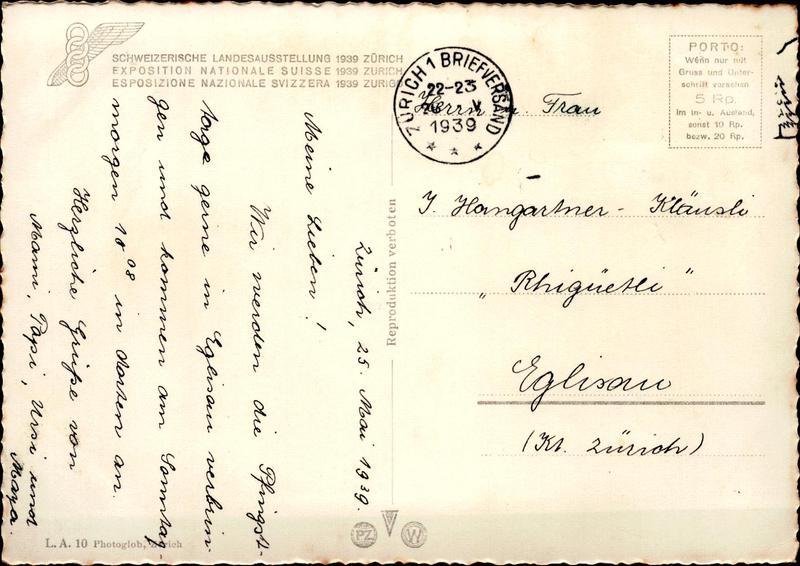 SCHWEIZERISCHE LANDESAUSSTELLUNG 1939 ZÜRICH
EXPOSITION NATIONALE SUISSE 1939 ZURICH
ESPOSIZIONE NAZIONALE SVIZZERA 1939 ZURIGO
Zürich, 25. Mai 1939.
Meine Lieben!
Wir werden die Pfingst-
tage gerne in Eglisau verbrin-
gen und kommen am Sonntag-
morgen 10⁰⁸ in dorten an.
Herzliche Grüße von
Mami, Papi, Ursi und
L. A. 10 Photoglob, Zürich
Reproduktion verboten
PZ
W
ZÜRICH 1 BRIEFVERSAND
22-23
V
1939
PORTO:
Wenn nur mit
Gruss und Unter-
schrift versehen
5 Rp.
im In- u. Ausland,
sonst 10 Rp.
bezw. 20 Rp.
Herrn u. Frau
J. Hangartner - Kläusli
„Rhigüetli"
Eglisau
(Kt. Zürich)